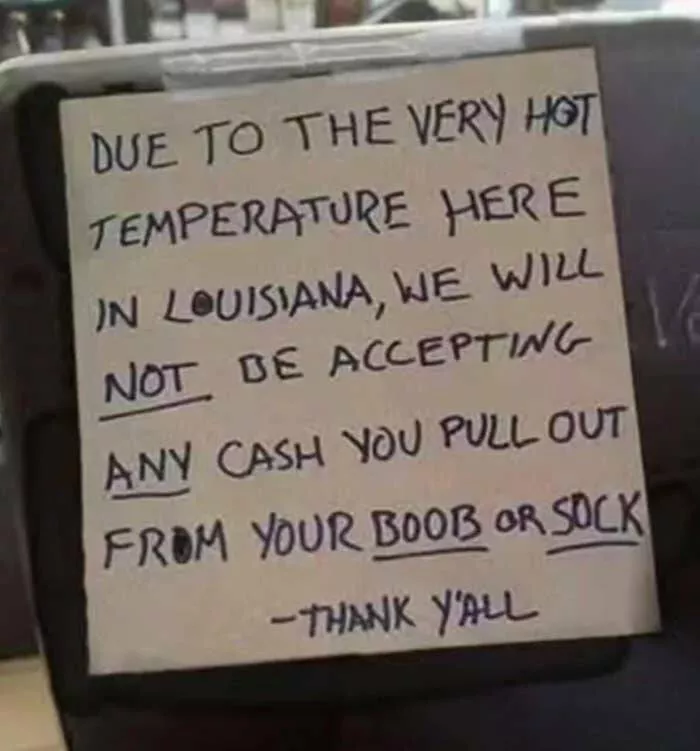 DUE TO THE VERY HOT
TEMPERATURE HERE
IN LOUISIANA, WE WILL
NOT BE ACCEPTING
ANY CASH YOU PULL OUT
FROM YOUR BOOB OR SOCK
-THANK Y'ALL